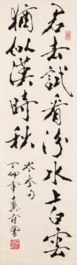 君去試看汾水上白雲
猶似漢時秋 岑參句
丁卯年